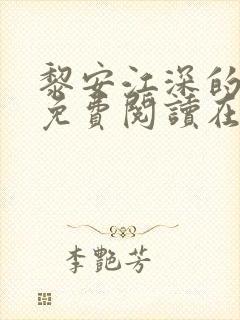 黎安江深的
免費閱讀在
李艷芳